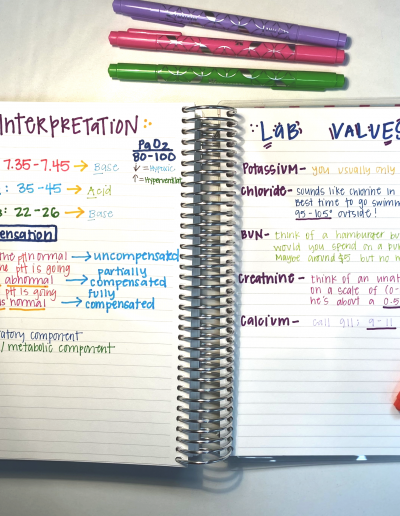 Interpretation
PaO2
80-100
↓ = Hypoxic
↑ = Hyperventilat
7.35-7.45 → Base
: 35-45 → Acid
: 22-26 → Base
ensation
the pH normal → uncompensated
pH is going
abnormal → partially compensated
pH is going
normal → fully compensated
atory component
/ metabolic component
Lab Values
Potassium- you usually only
Chloride- sounds like chlorine in
Best time to go swim
95-105° outside!
BUN- think of a hamburger bu
would you spend on a
Maybe around $5 but no
Creatinine- think of an
on a scale of (0-
he's about a 0.5
Calcium- call 911: 9-11